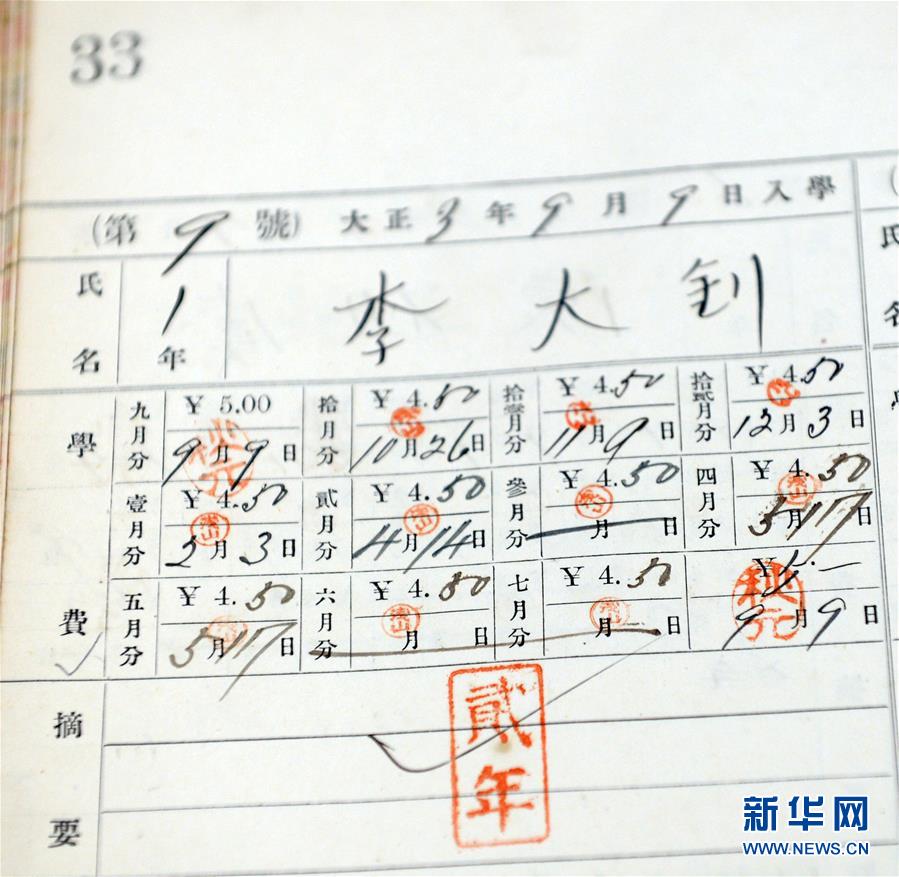 33
(第9號) 大正3年9月9日入學
氏名 1年 李大釗
學費
九月分 ¥5.00 9月9日
拾月分 ¥4.50 10月26日
拾壹月分 ¥4.50 11月9日
拾貳月分 ¥4.50 12月3日
壹月分 ¥4.50 2月3日
貳月分 ¥4.50 4月14日
參月分 ¥4.50 月 日
四月分 ¥4.50 5月17日
五月分 ¥4.50 5月17日
六月分 ¥4.50 月 日
七月分 ¥4.50 月 日
¥ 9月9日
摘要
貳年
氏名
新华网
WWW.NEWS.CN